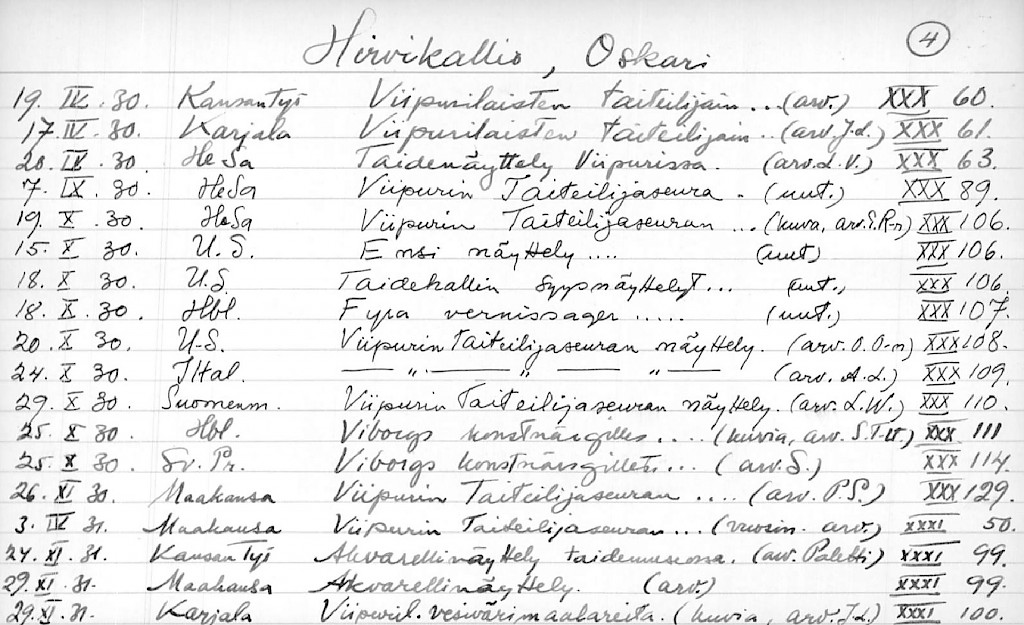 Hirvikallio, Oskari 4
19. IV. 30. Kansan Työ Viipurilaisten taiteilijain... (arv.) XXX 60.
17. IV. 30. Karjala Viipurilaisten taiteilijain.. (arv. J.L.) XXX 61.
20. IV. 30. HeSa Taidenäyttely Viipurissa. (arv. L.V.) XXX 63.
7. IX. 30. HeSa Viipurin Taiteilijaseura. (uut.) XXX 89.
19. X. 30. HeSa Viipurin Taiteilijaseuran ... (kuva, arv. S.R-n) XXX 106.
15. X. 30. U.S. Ensi näyttely .... (uut) XXX 106.
18. X 30. U.S. Taidehallin syysnäyttelyt... (uut.) XXX 106.
18. X. 30. Hbl. Fyra vernissager ..... (uut.) XXX 107.
20. X 30. U.S. Viipurin Taiteilijaseuran näyttely. (arv. O.O-n) XXX 108.
24. X 30. Ilkal. — " — " — " — (arv. A.L.) XXX 109.
29. X 30. Suomenm. Viipurin Taiteilijaseuran näyttely. (arv. L.W.) XXX 110.
25. X 30. Hbl. Viborgs konstnärsgilles .... (kuvia, arv. S.T-ll) XXX 111
25. X 30. Sv. Pr. Viborgs konstnärsgillets... (arv. S.) XXX 114.
26. XI 30. Maakansa Viipurin Taiteilijaseuran .... (arv. P.S.) XXX 129.
3. IV 31. Maakansa Viipurin Taiteilijaseuran... (vuosin. arv.) XXXI 50.
24. XI. 31. Kansan Työ Akvarellinäyttely taidemuseossa. (arv. Paletti) XXXI 99.
29. XI. 31. Maakansa Akvarellinäyttely. (arv.) XXXI 99.
29. XI. 31. Karjala Viipuril. vesivärimaalareita. (kuvia, arv. J.L) XXXI 100.